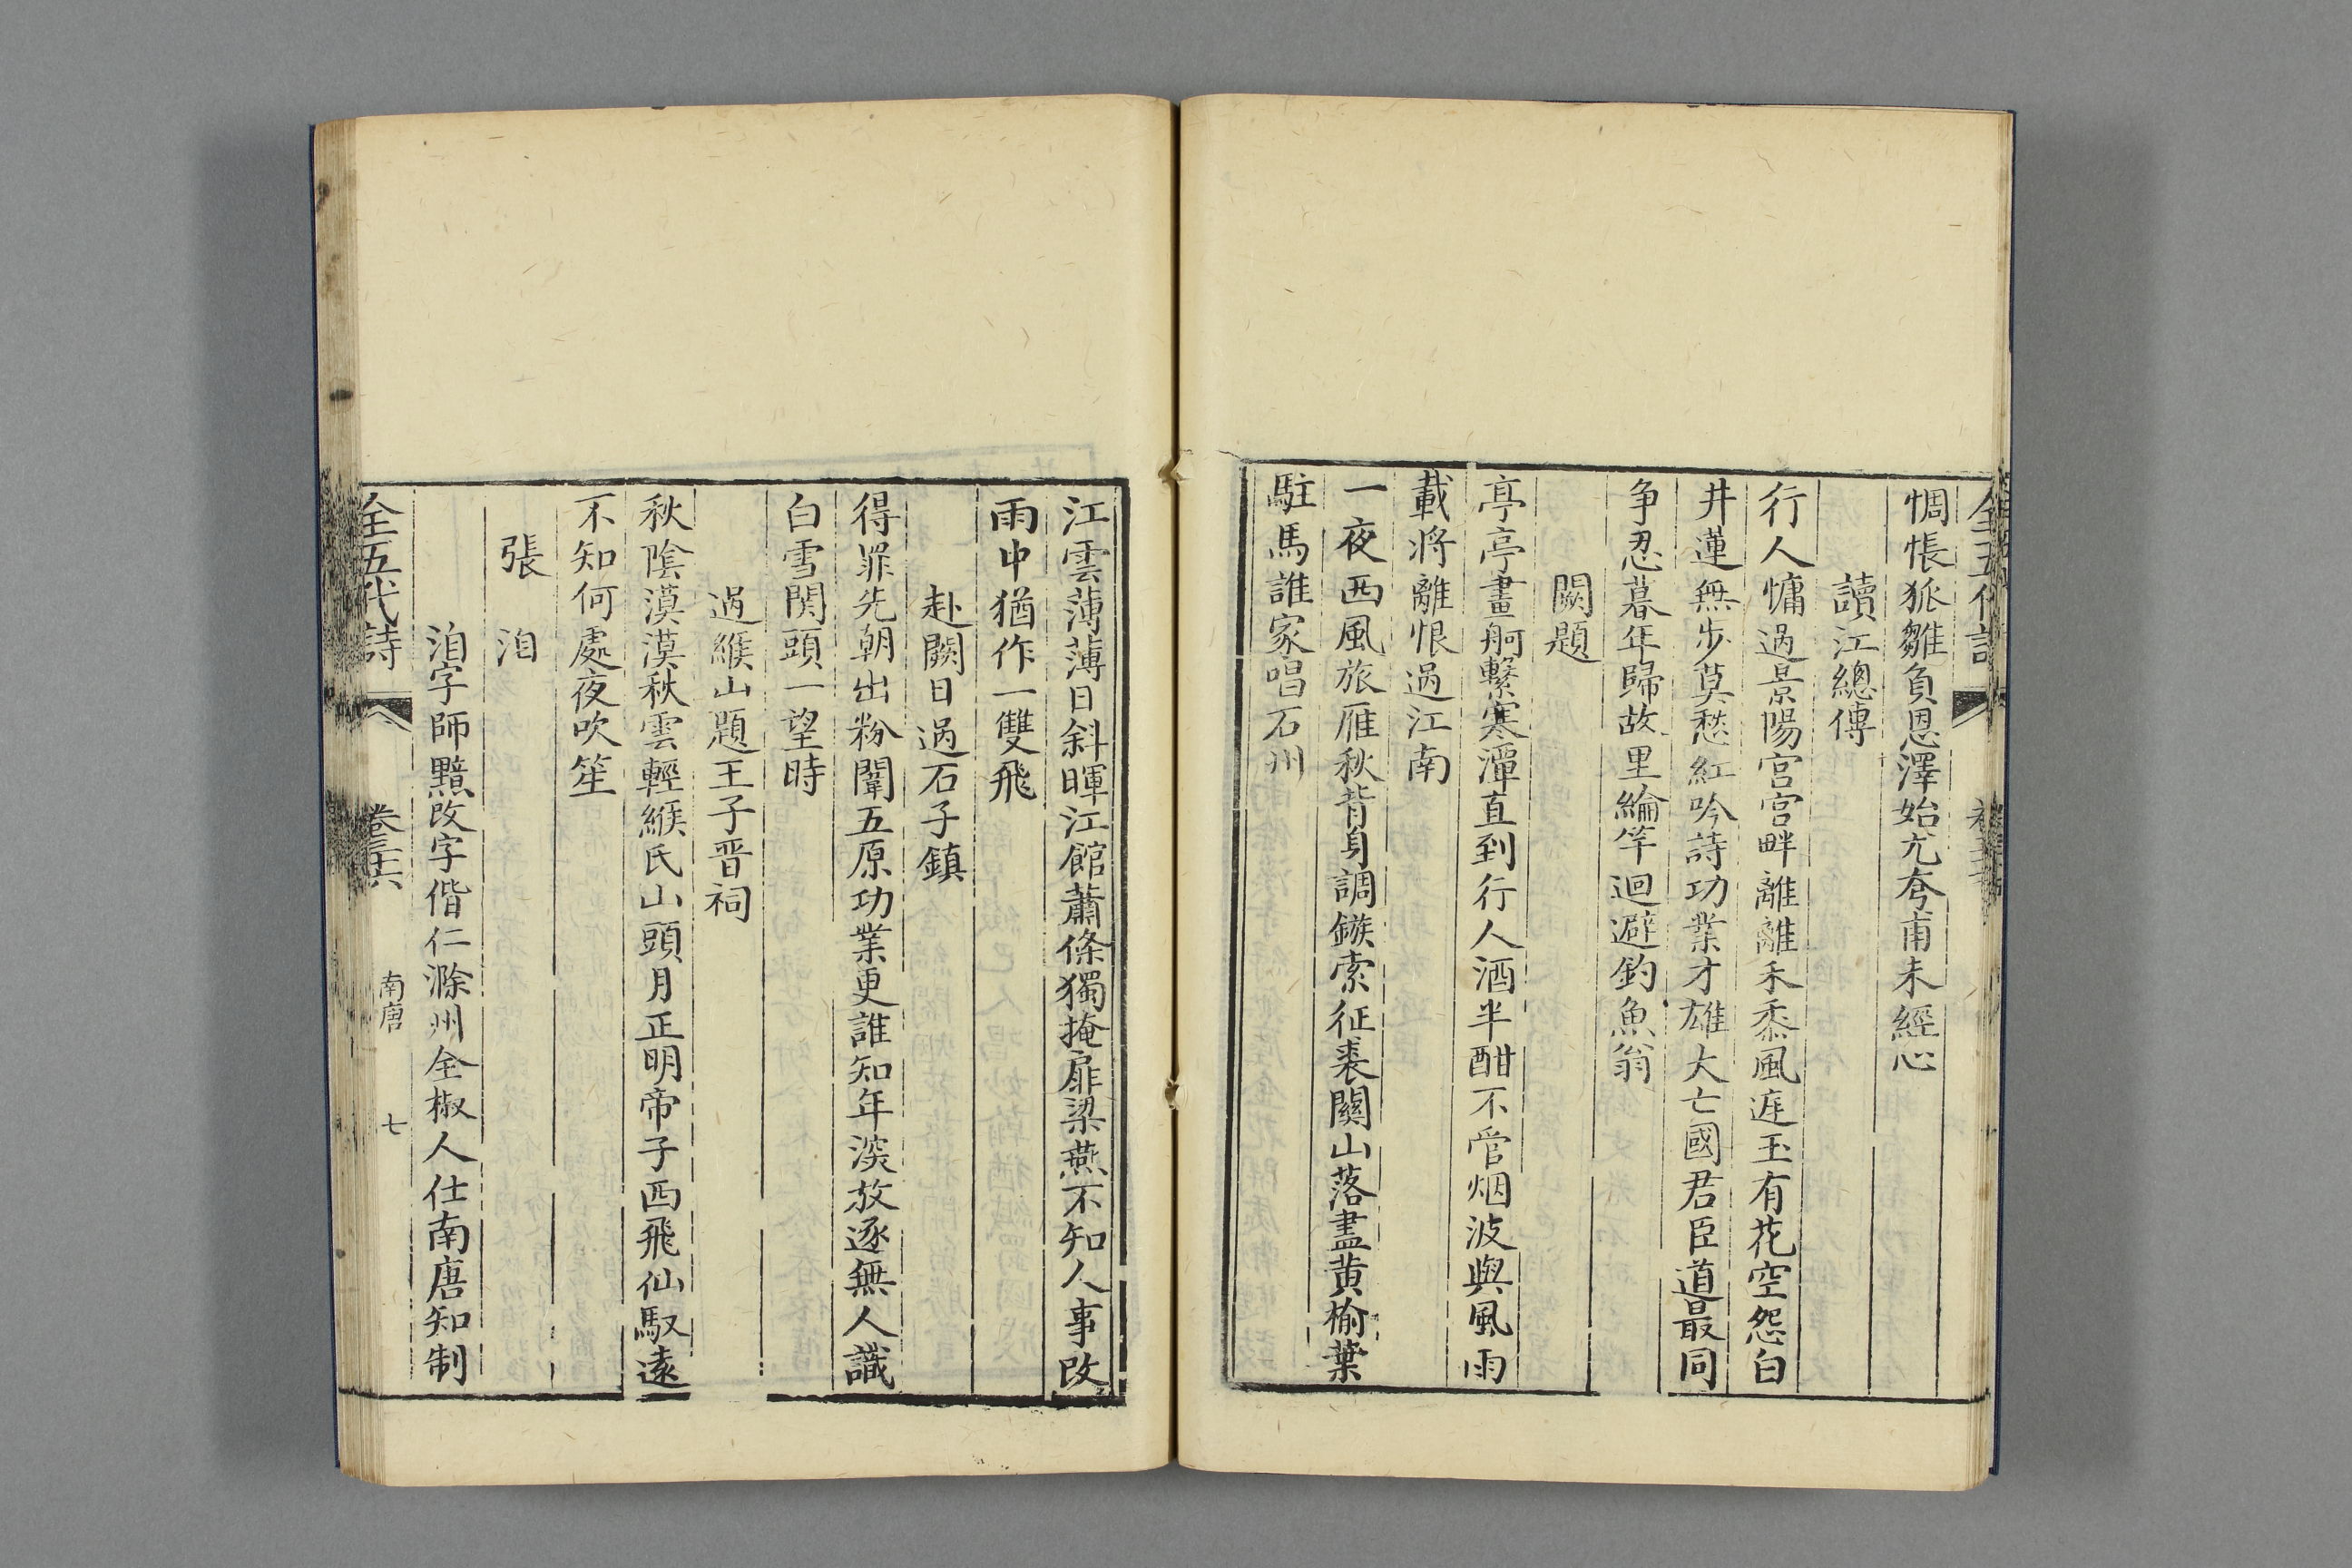 惆悵狐雛負恩澤始尤夸甫未經心
讀江總傳
行人慵過景陽宮宮畔離離禾黍風遅玉有花空怨白
井蓮無步莫愁紅吟詩功業才雄大亡國君臣道最同
争忍暮年歸故里綸竿迴避釣魚翁
闕題
亭亭畫舸繫寒潭直到行人酒半酣不管烟波與風雨
載將離恨過江南
一夜西風旅雁秋背身調鏃索征裘關山落盡黄榆葉
駐馬誰家唱石州
江雲薄薄日斜暉江館蕭條獨掩扉梁燕不知人事改
雨中猶作一雙飛
赴闕日過石子鎮
得罪先朝出粉闈五原功業更誰知年深放逐無人識
白雪關頭一望時
過緱山題王子晋祠
秋陰漠漠秋雲輕緱氏山頭月正明帝子西飛仙馭遠
不知何處夜吹笙
張洎
洎字師黯改字偕仁滁州全椒人仕南唐知制
全五代詩 卷三六 南唐 七